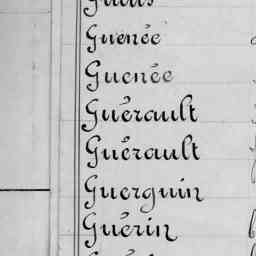 Guenée
Guenée
Guérault
Guérault
Guerguin
Guérin